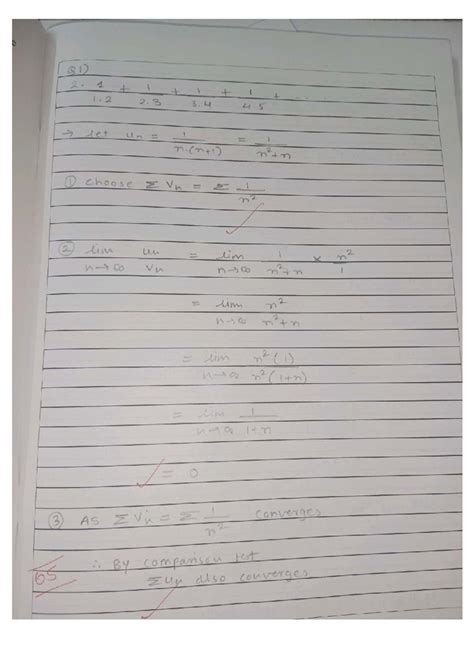 Q1)
2. 1/1.2 + 1/2.3 + 1/3.4 + 1/4.5 + ......
→ let un = 1/n.(n+1) = 1/n²+n
① choose Σ Vn = Σ 1/n²
② lim n→∞ un/vn = lim n→∞ 1/n²+n × n²/1
= lim n→∞ n²/n²+n
= lim n→∞ n²(1)/n²(1+n)
= lim n→∞ 1/1+n
= 0
③ As ΣVn = Σ 1/n² converges
∴ By comparison test
Σun also converges
05